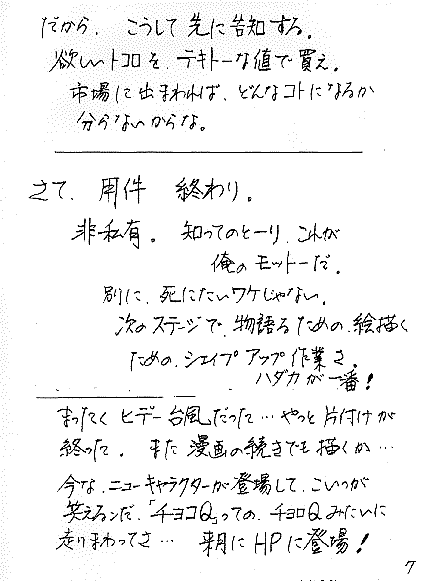 だから、こうして先に告知する。
欲しいトコロを、テキトーな値で買え。
市場に出まわれば、どんなコトになるか
分らないからな。
さて、用件 終わり。
非私有。知ってのとーり、これが
俺のモットーだ。
別に、死にたいワケじゃない。
次のステージで、物語るための、絵描く
ための、シェイプアップ作業さ。
ハダカが一番！
まったく ヒデー台風だった…やっと片付けが
終った。また漫画の続きでも描くか…
今な、ニューキャラクターが登場して、こいつが
笑えるンだ、「チョコQ」っての、チョロQみたいに
走りまわってさ… 来月にHPに登場！
7